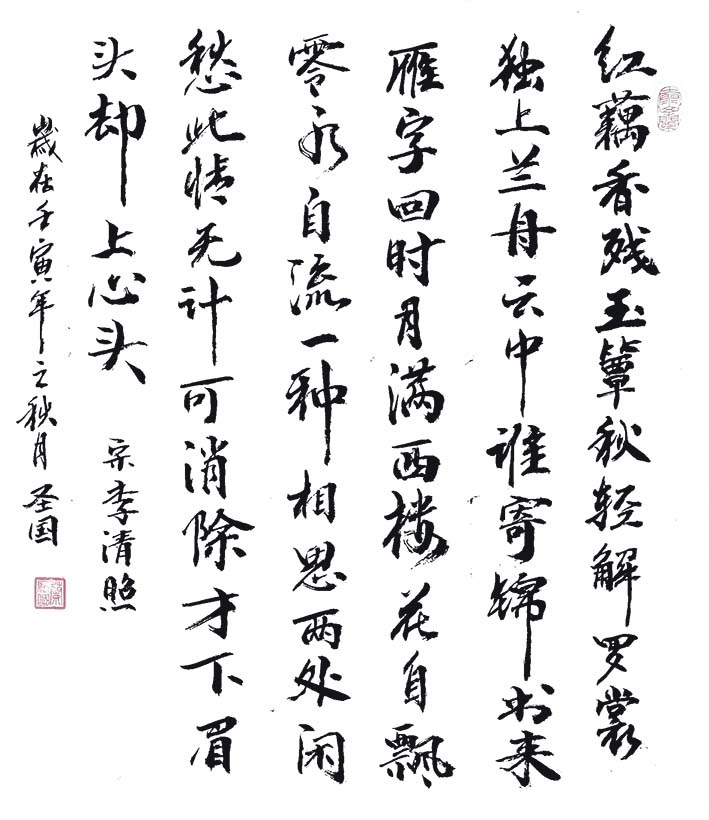 红藕香残玉簟秋轻解罗裳
独上兰舟云中谁寄锦书来
雁字回时月满西楼花自飘
零水自流一种相思两处闲
愁此情无计可消除才下眉
头却上心头 宋李清照
岁在壬寅年之秋月 圣国